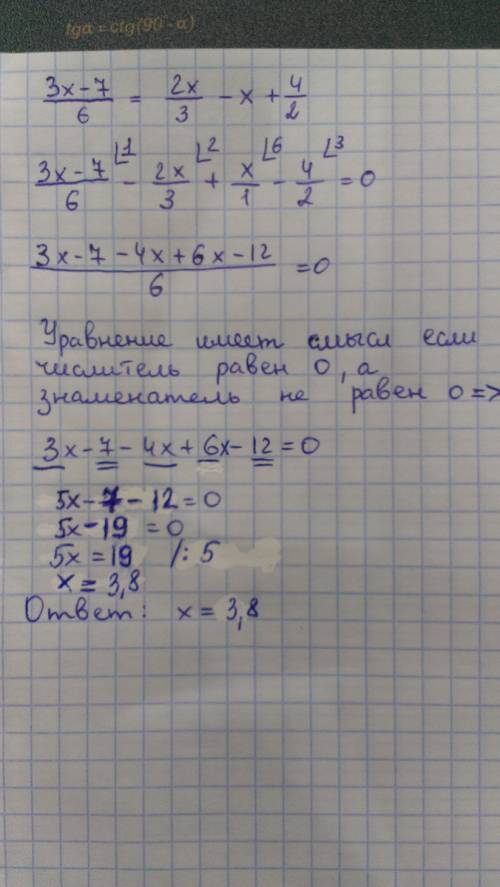 tgα = ctg(90 - α)
3x-7/6 = 2x/3 - x + 4/2
3x-7/6 ⌊1 - 2x/3 ⌊2 + x/1 ⌊6 - 4/2 ⌊3 = 0
3x-7-4x+6x-12/6 = 0
Уравнение имеет смысл если
числитель равен 0, а
знаменатель не равен 0 =>
3x-7-4x+6x-12=0
5x-7-12=0
5x-19=0
5x=19 /:5
x=3,8
Ответ: x=3,8